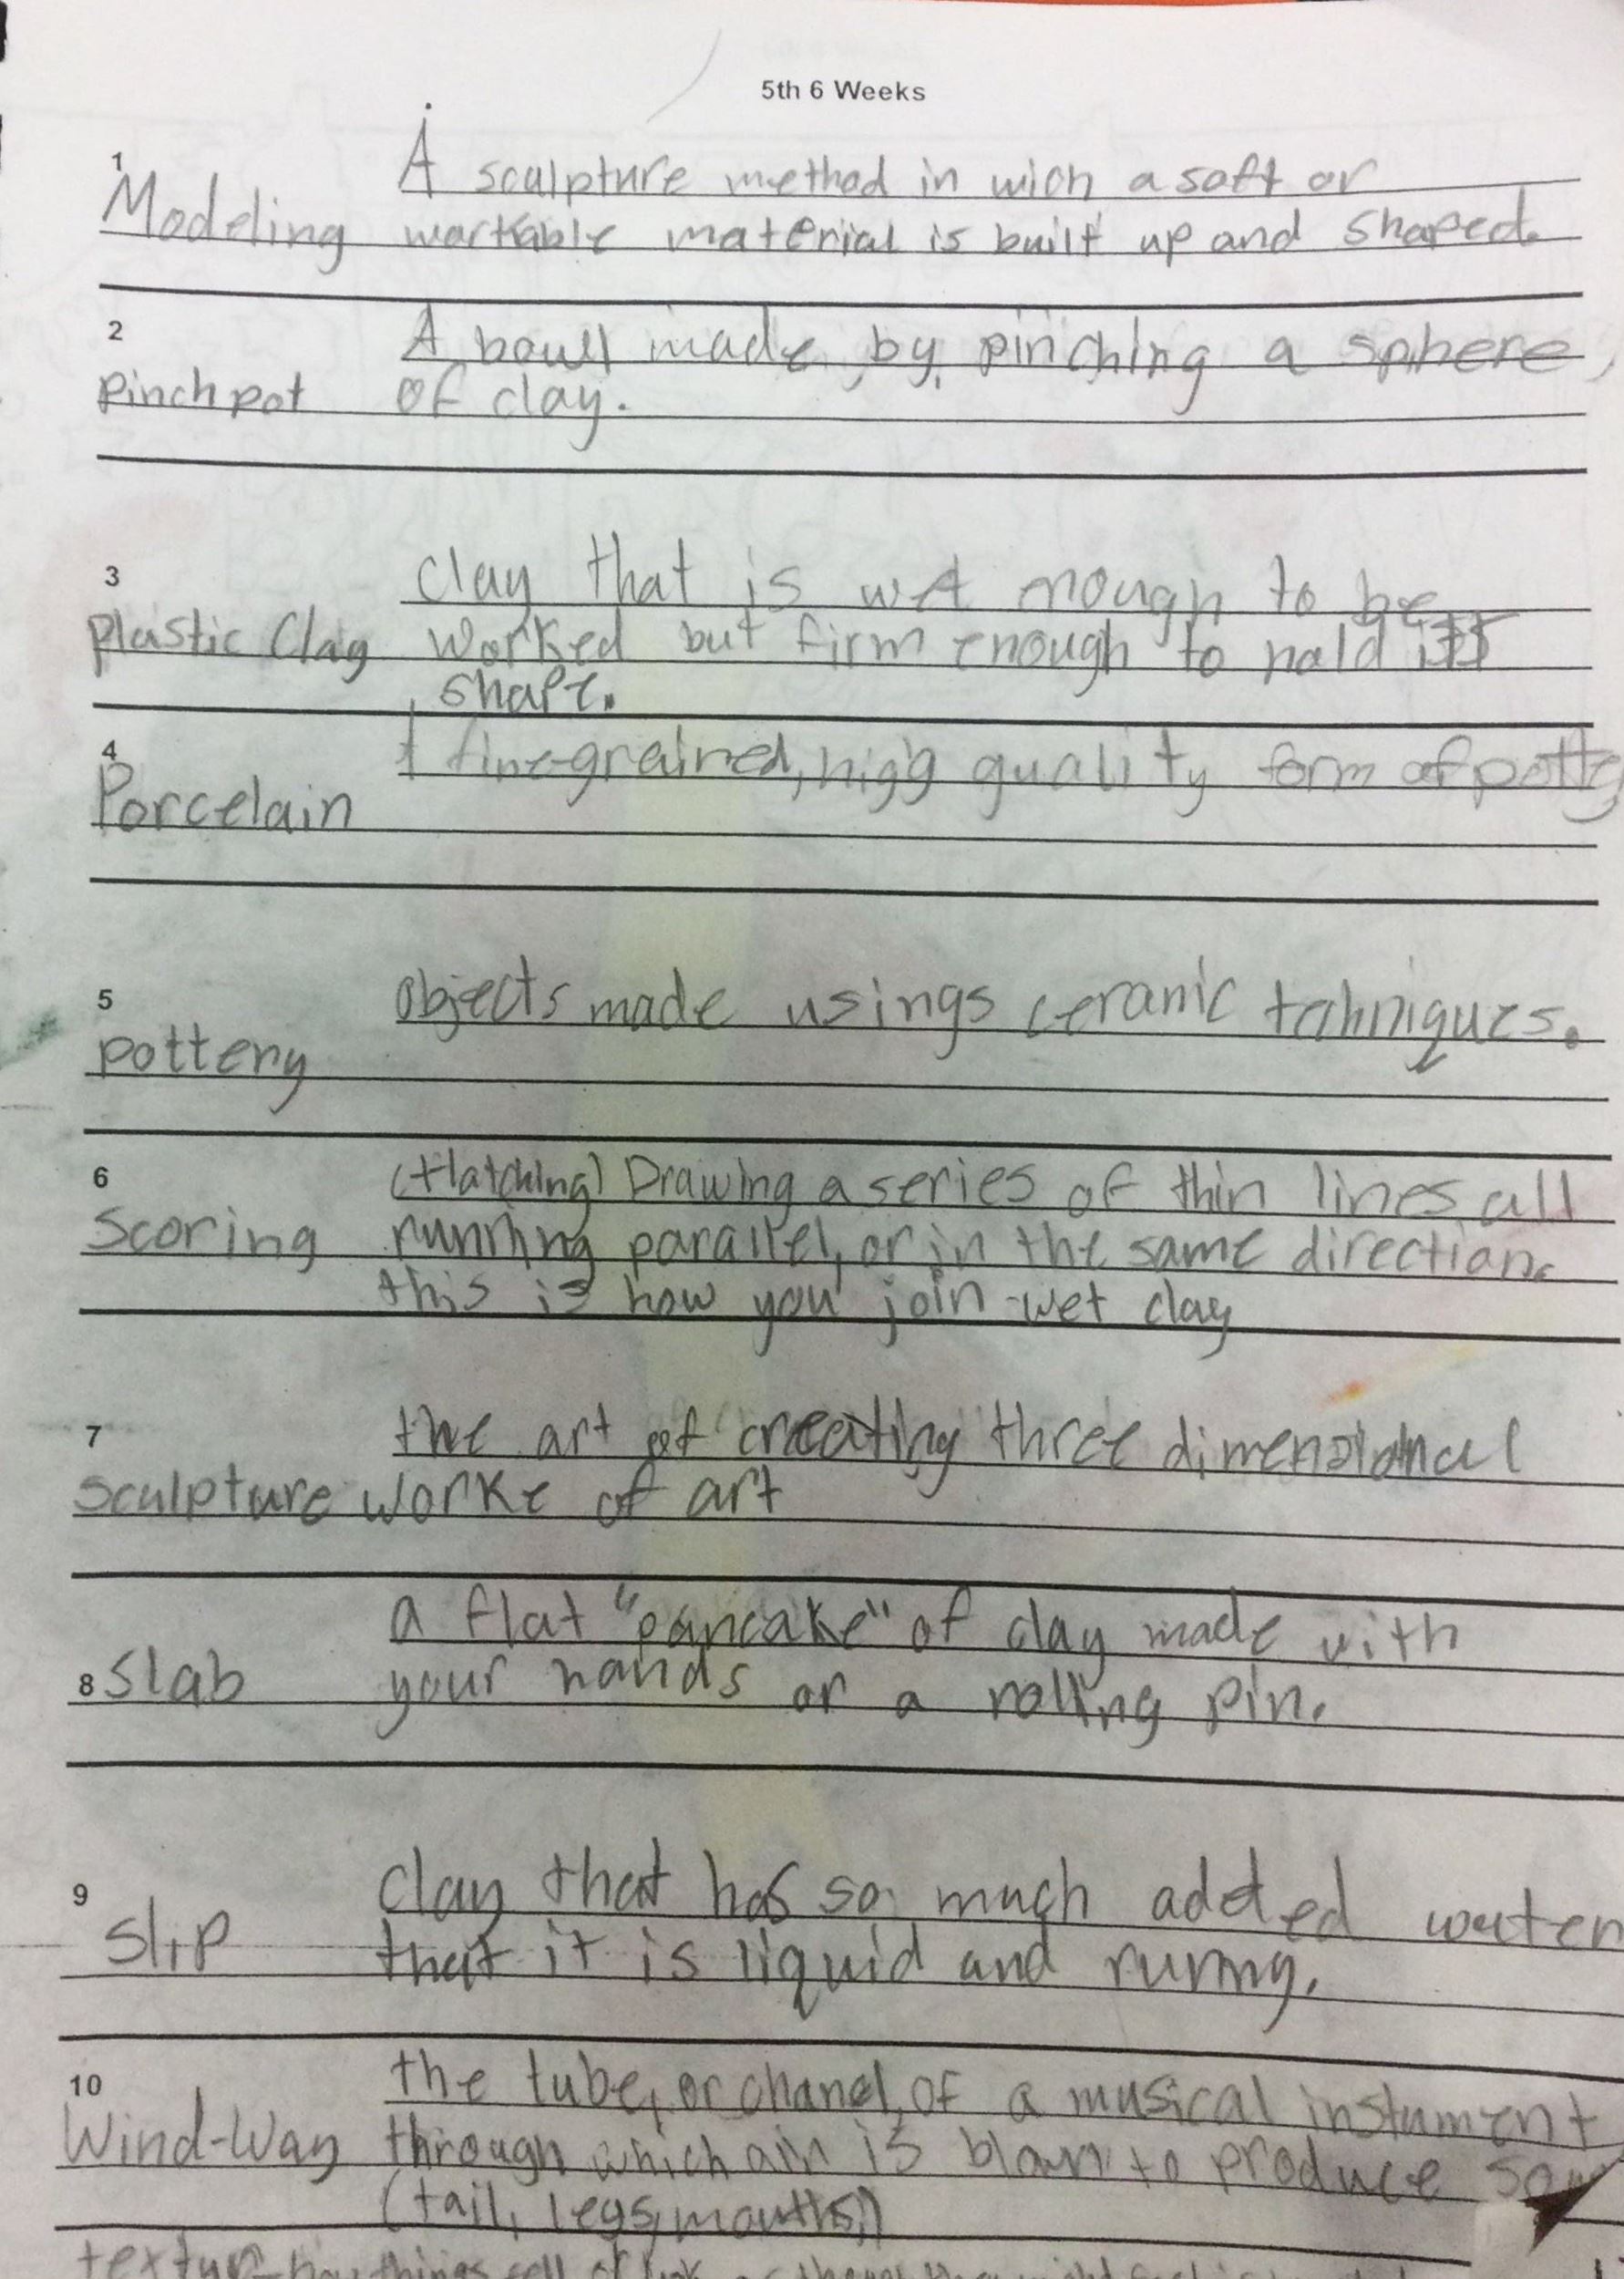 5th 6 Weeks
1
A sculpture method in wich a soft or
Modeling workable material is built up and shaped.
2
A bowll made by pinching a sphere
pinch pot of clay.
3
Clay that is wet enough to be
Plastic Clay worked but firm enough to hold its
shape.
4
A fine-grained, high quality form of
Porcelain
5
objects made usings ceramic tehniques.
pottery
6
(Hatching) Drawing a series of thin lines all
scoring running parallel, or in the same direction.
this is how you join wet clay
7
the art of creating three dimensional
sculpture worke of art
a flat "pancake" of clay made with
8 Slab your hands or a rolling pin.
9
clay that has so much added water
Slip that it is liquid and runny.
10
the tube, or chanel, of a musical instument
Wind-Way through which air is blown to produce
(tail, legs, mouths,)
how things